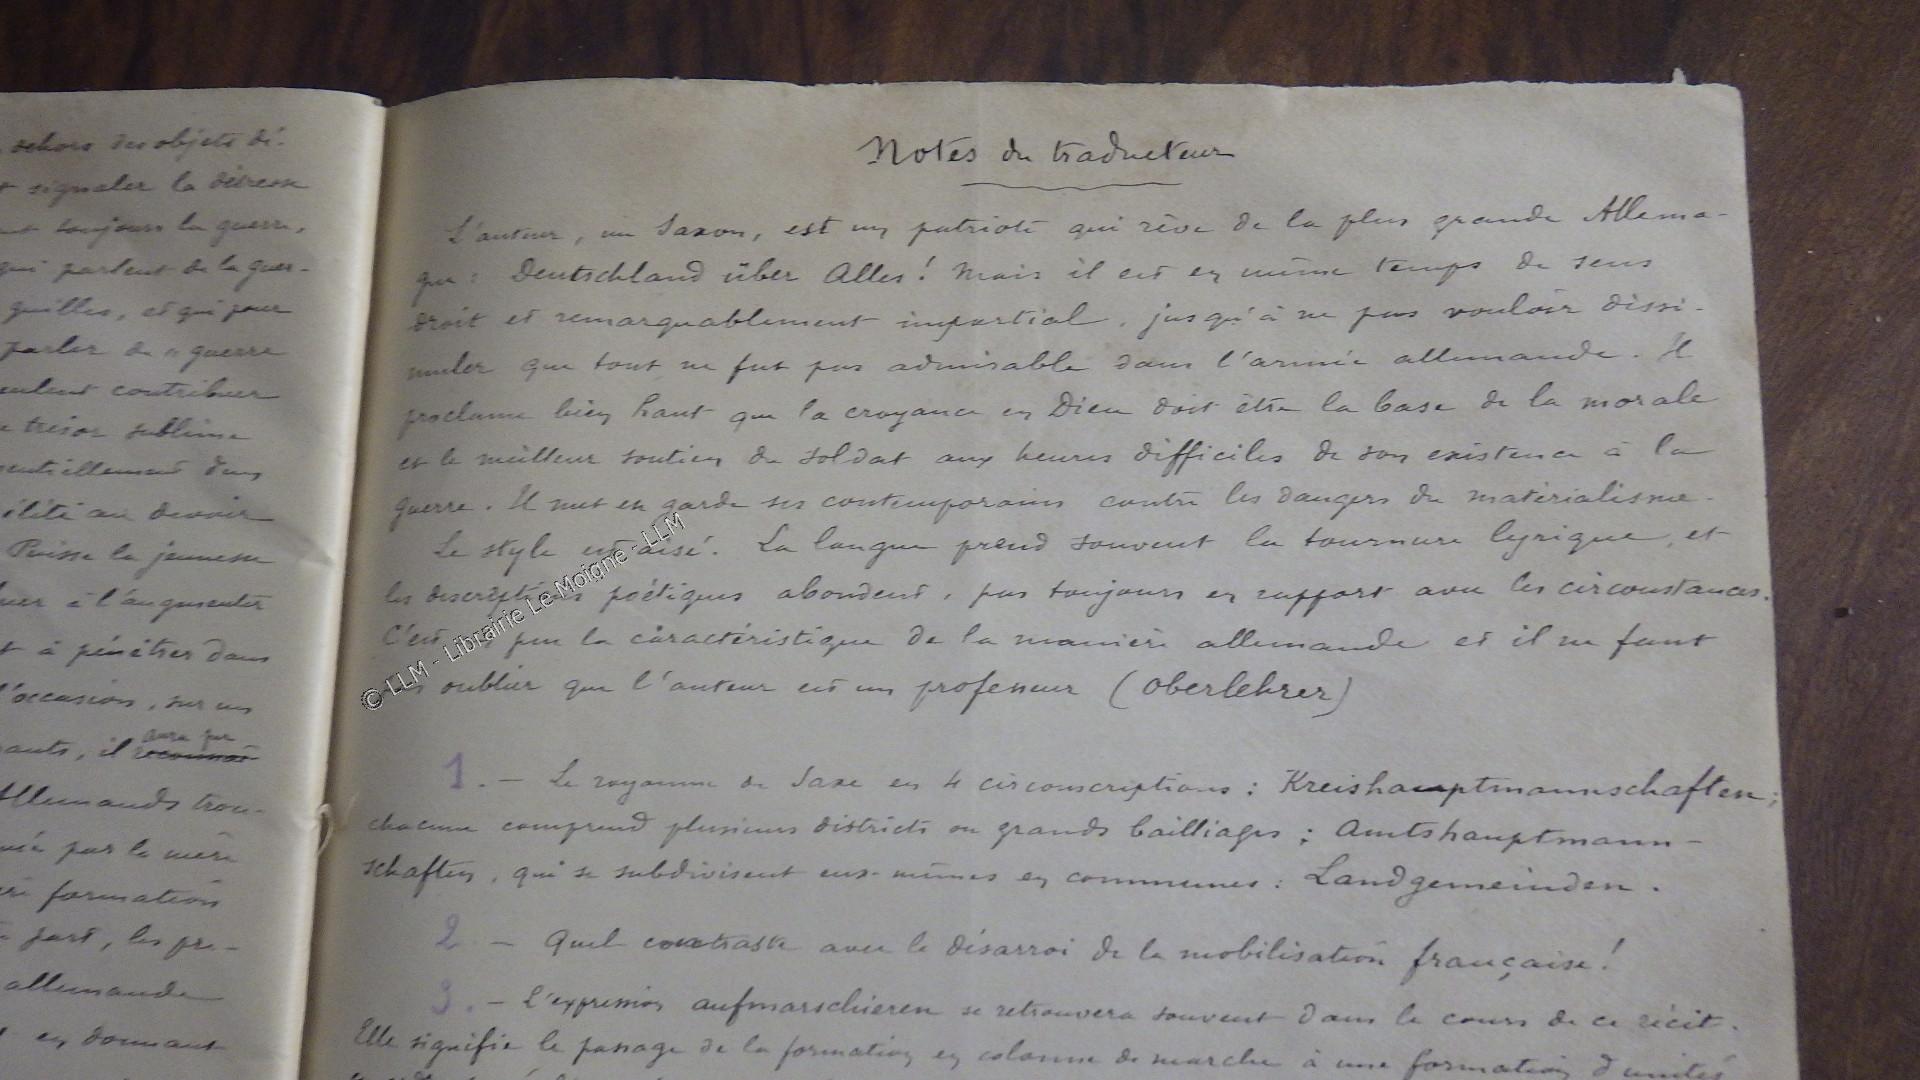 dehors des objets dé-
signaler la détresse
toujours la guerre,
qui parlent de la guer-
guilles, et qui pour
parler de "guerre
veulent contribuer
trésor sublime
dans
au devoir
Puisse la jeunesse
à l'augmenter
à pénétrer dans
l'occasion, sur un
aura pu
il
Allemands trou-
par la mère
formation
part, les pre-
allemande
en donnant
Notes du traducteur
L'auteur, un Saxon, est un patriote qui rêve de la plus grande Allema-
gne : Deutschland über Alles ! Mais il est en même temps de sens
droit et remarquablement impartial, jusqu'à ne pas vouloir dissi-
muler que tout ne fut pas admirable dans l'armée allemande. Il
proclame bien haut que la croyance en Dieu doit être la base de la morale
et le meilleur soutien du soldat aux heures difficiles de son existence à la
guerre. Il met en garde ses contemporains contre les dangers du matérialisme.
Le style est aisé. La langue prend souvent la tournure lyrique, et
les descriptions poétiques abondent, pas toujours en rapport avec les circonstances.
C'est peu la caractéristique de la manière allemande et il ne faut
oublier que l'auteur est un professeur (Oberlehrer)
1. - Le royaume de Saxe en 4 circonscriptions : Kreishauptmannschaften ;
chacune comprend plusieurs districts ou grands bailliages : Amtshauptmann-
schaften, qui se subdivisent eux-mêmes en communes : Landgemeinden.
2 - Quel contraste avec le désarroi de la mobilisation française !
3. - L'expression aufmarschieren se retrouvera souvent dans le cours de ce récit.
Elle signifie le passage de la formation en colonne de marche à une formation d'unités
© LLM - Librairie Le Moigne - LLM